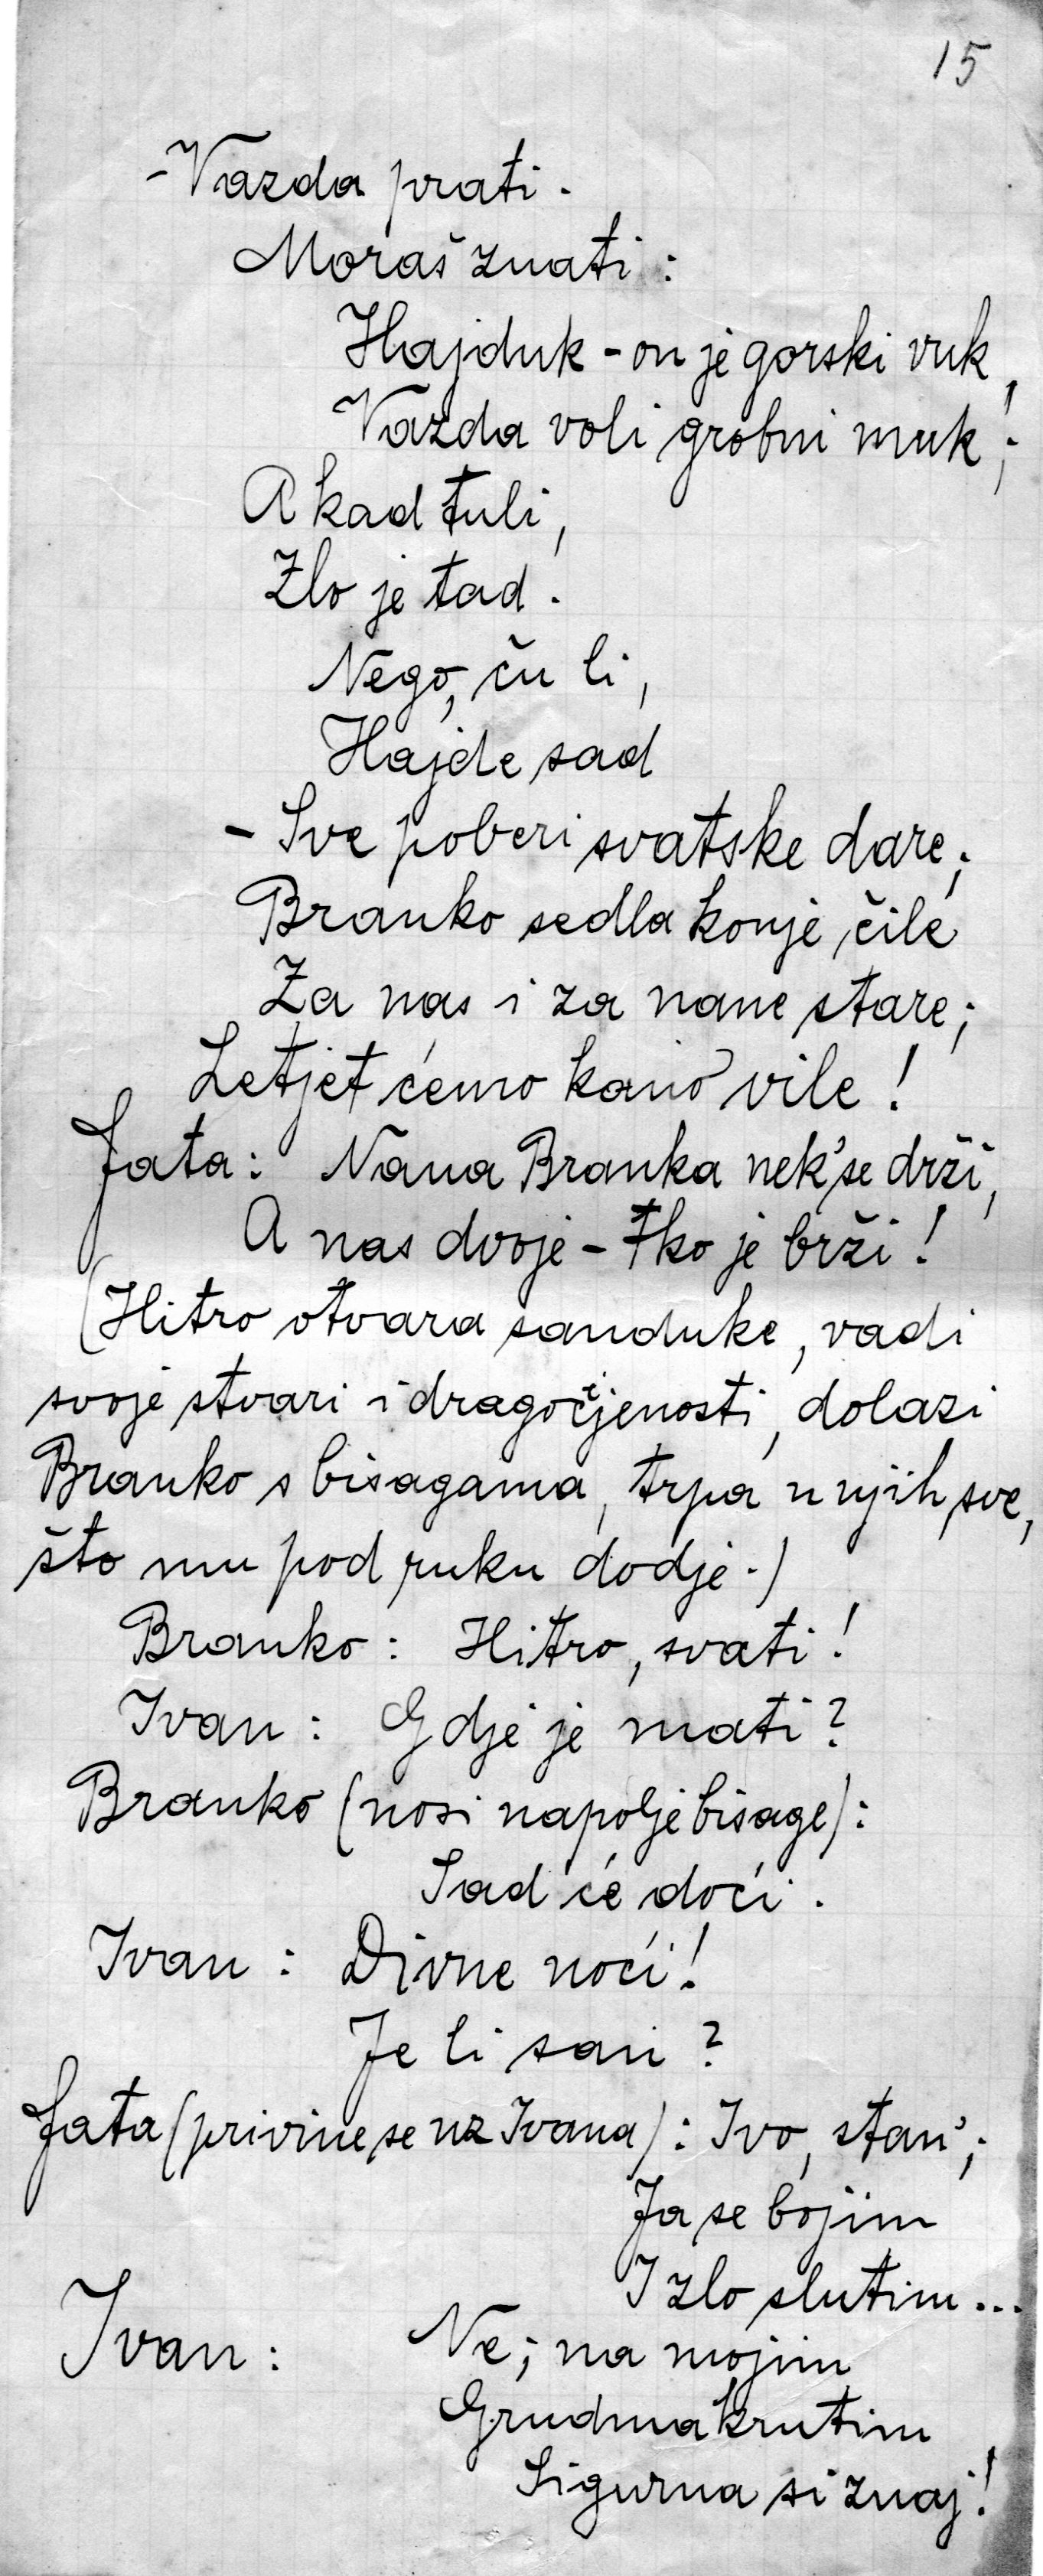 15
- Vazda prati.
Moraš znati:
Hajduk - on je gorski vuk,
Vazda voli grobni muk;
A kad tuli,
Zlo je tad.
Nego, ču li,
Hajde sad
- Sve poberi svatske dare;
Branko sedla konje čile
Za nas i za nane stare;
Letjet ćemo kano vile!
Fata: Nana Branka nek' se drži,
A nas dvoje - tko je brži!
(Hitro otvara sanduke, vadi
svoje stvari i dragocjenosti, dolazi
Branko s bisagama, trpa u njih sve,
što mu pod ruku dodje.)
Branko: Hitro, svati!
Ivan: Gdje je mati?
Branko (nosi napolje bisage):
Sad će doći.
Ivan: Divne noći!
Je li san?
Fata (privine se uz Ivana): Ivo, stan';
Ja se bojim
I zlo slutim...
Ivan: Ne; na mojim
Grudma krutim
Sigurna si znaj!